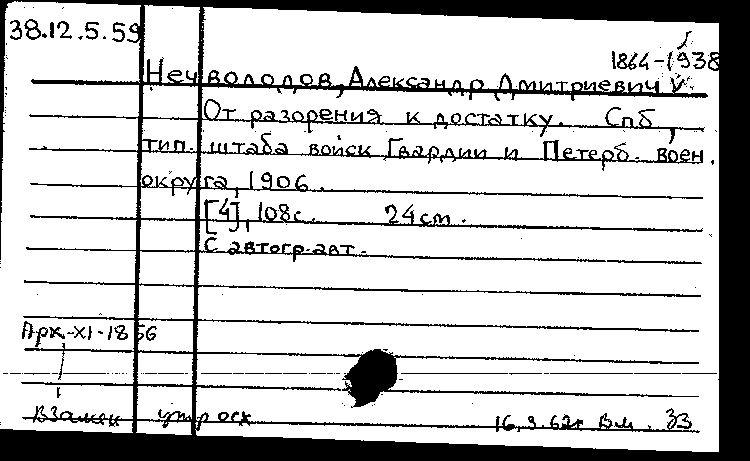 38.12.5.59
1864-1938
Нечволодов, Александр Дмитриевич V
От разорения к достатку. Спб,
тип. штаба войск Гвардии и Петерб. воен.
округа, 1906.
[4], 108с. 24см.
С автогр. авт.
Арх.-XI-1856
Взамен 16.3.62г Вм. 33